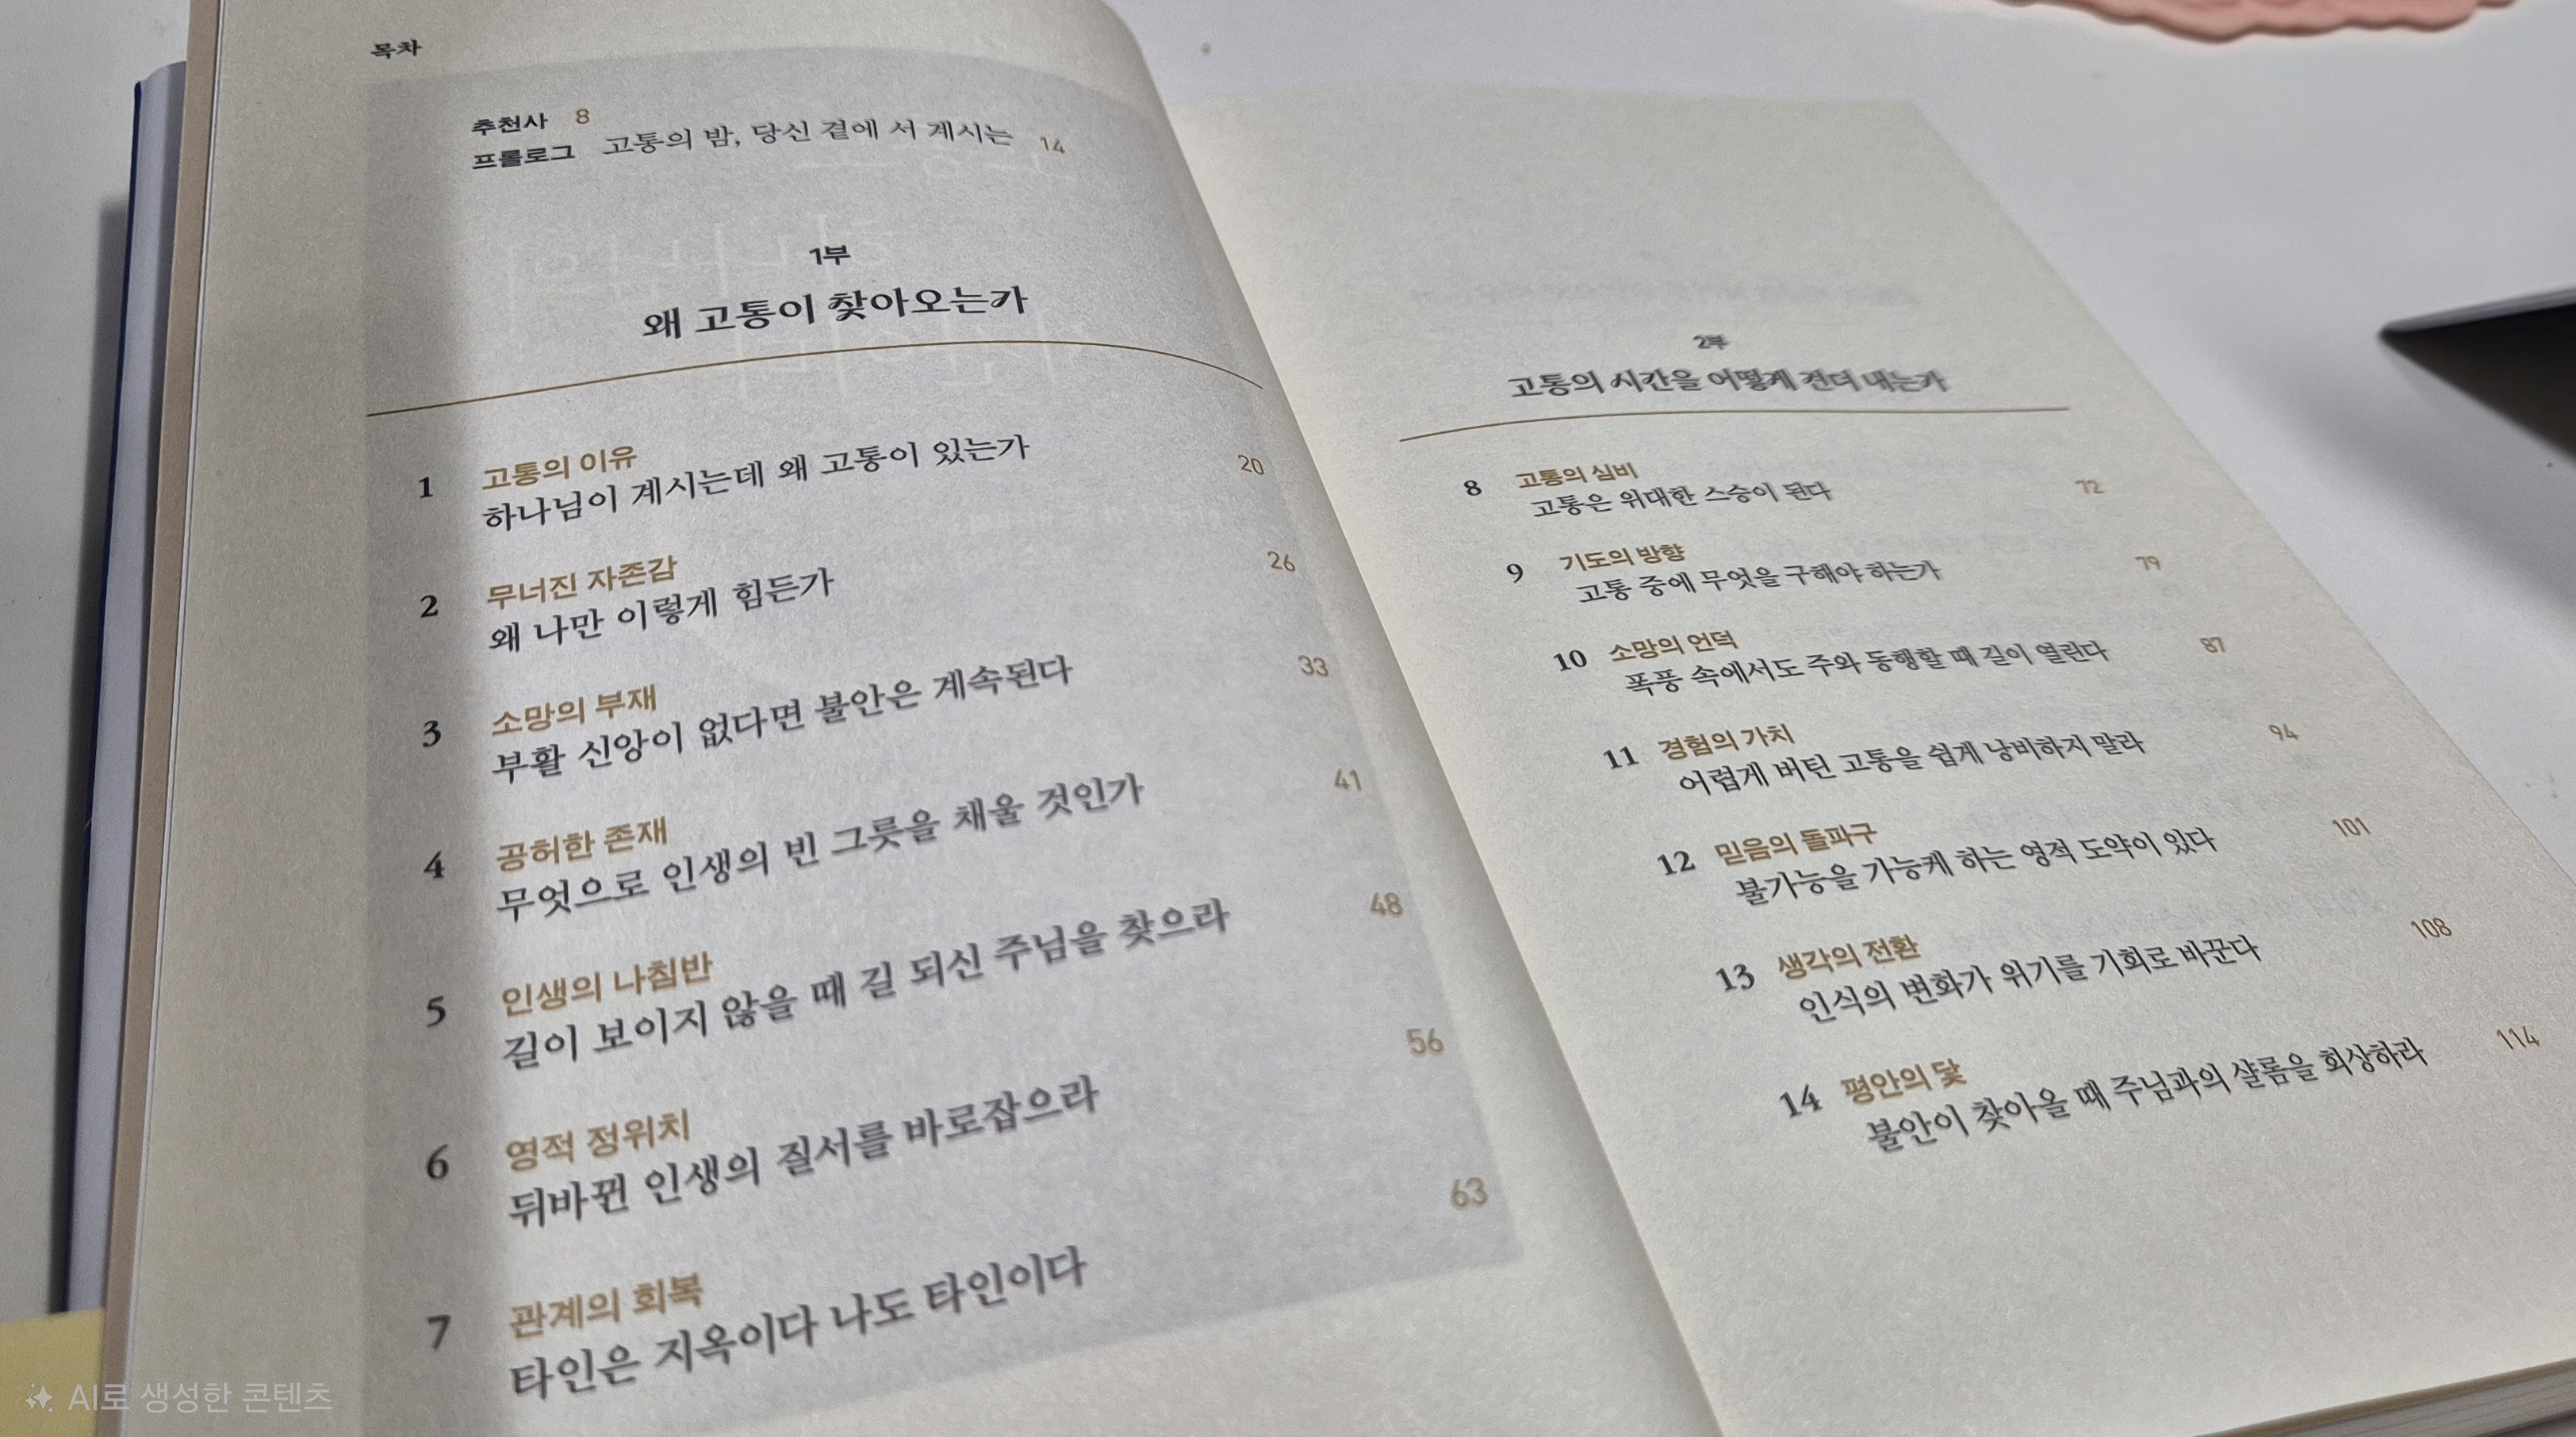 목차
추천사 8
프롤로그 고통의 밤, 당신 곁에 서 계시는 14
1부
왜 고통이 찾아오는가
1 고통의 이유
하나님이 계시는데 왜 고통이 있는가 20
2 무너진 자존감
왜 나만 이렇게 힘든가 26
3 소망의 부재
부활 신앙이 없다면 불안은 계속된다 33
4 공허한 존재
무엇으로 인생의 빈 그릇을 채울 것인가 41
5 인생의 나침반
길이 보이지 않을 때 길 되신 주님을 찾으라 48
6 영적 정위치
뒤바뀐 인생의 질서를 바로잡으라 56
7 관계의 회복
타인은 지옥이다 나도 타인이다 63
2부
고통의 시간을 어떻게 견뎌 내는가
8 고통의 심비
고통은 위대한 스승이 된다 72
9 기도의 방향
고통 중에 무엇을 구해야 하는가 79
10 소망의 언덕
폭풍 속에서도 주와 동행할 때 길이 열린다 87
11 경험의 가치
어렵게 버틴 고통을 쉽게 낭비하지 말라 94
12 믿음의 돌파구
불가능을 가능케 하는 영적 도약이 있다 101
13 생각의 전환
인식의 변화가 위기를 기회로 바꾼다 108
14 평안의 닻
불안이 찾아올 때 주님과의 샬롬을 회상하라 114
AI로 생성한 콘텐츠